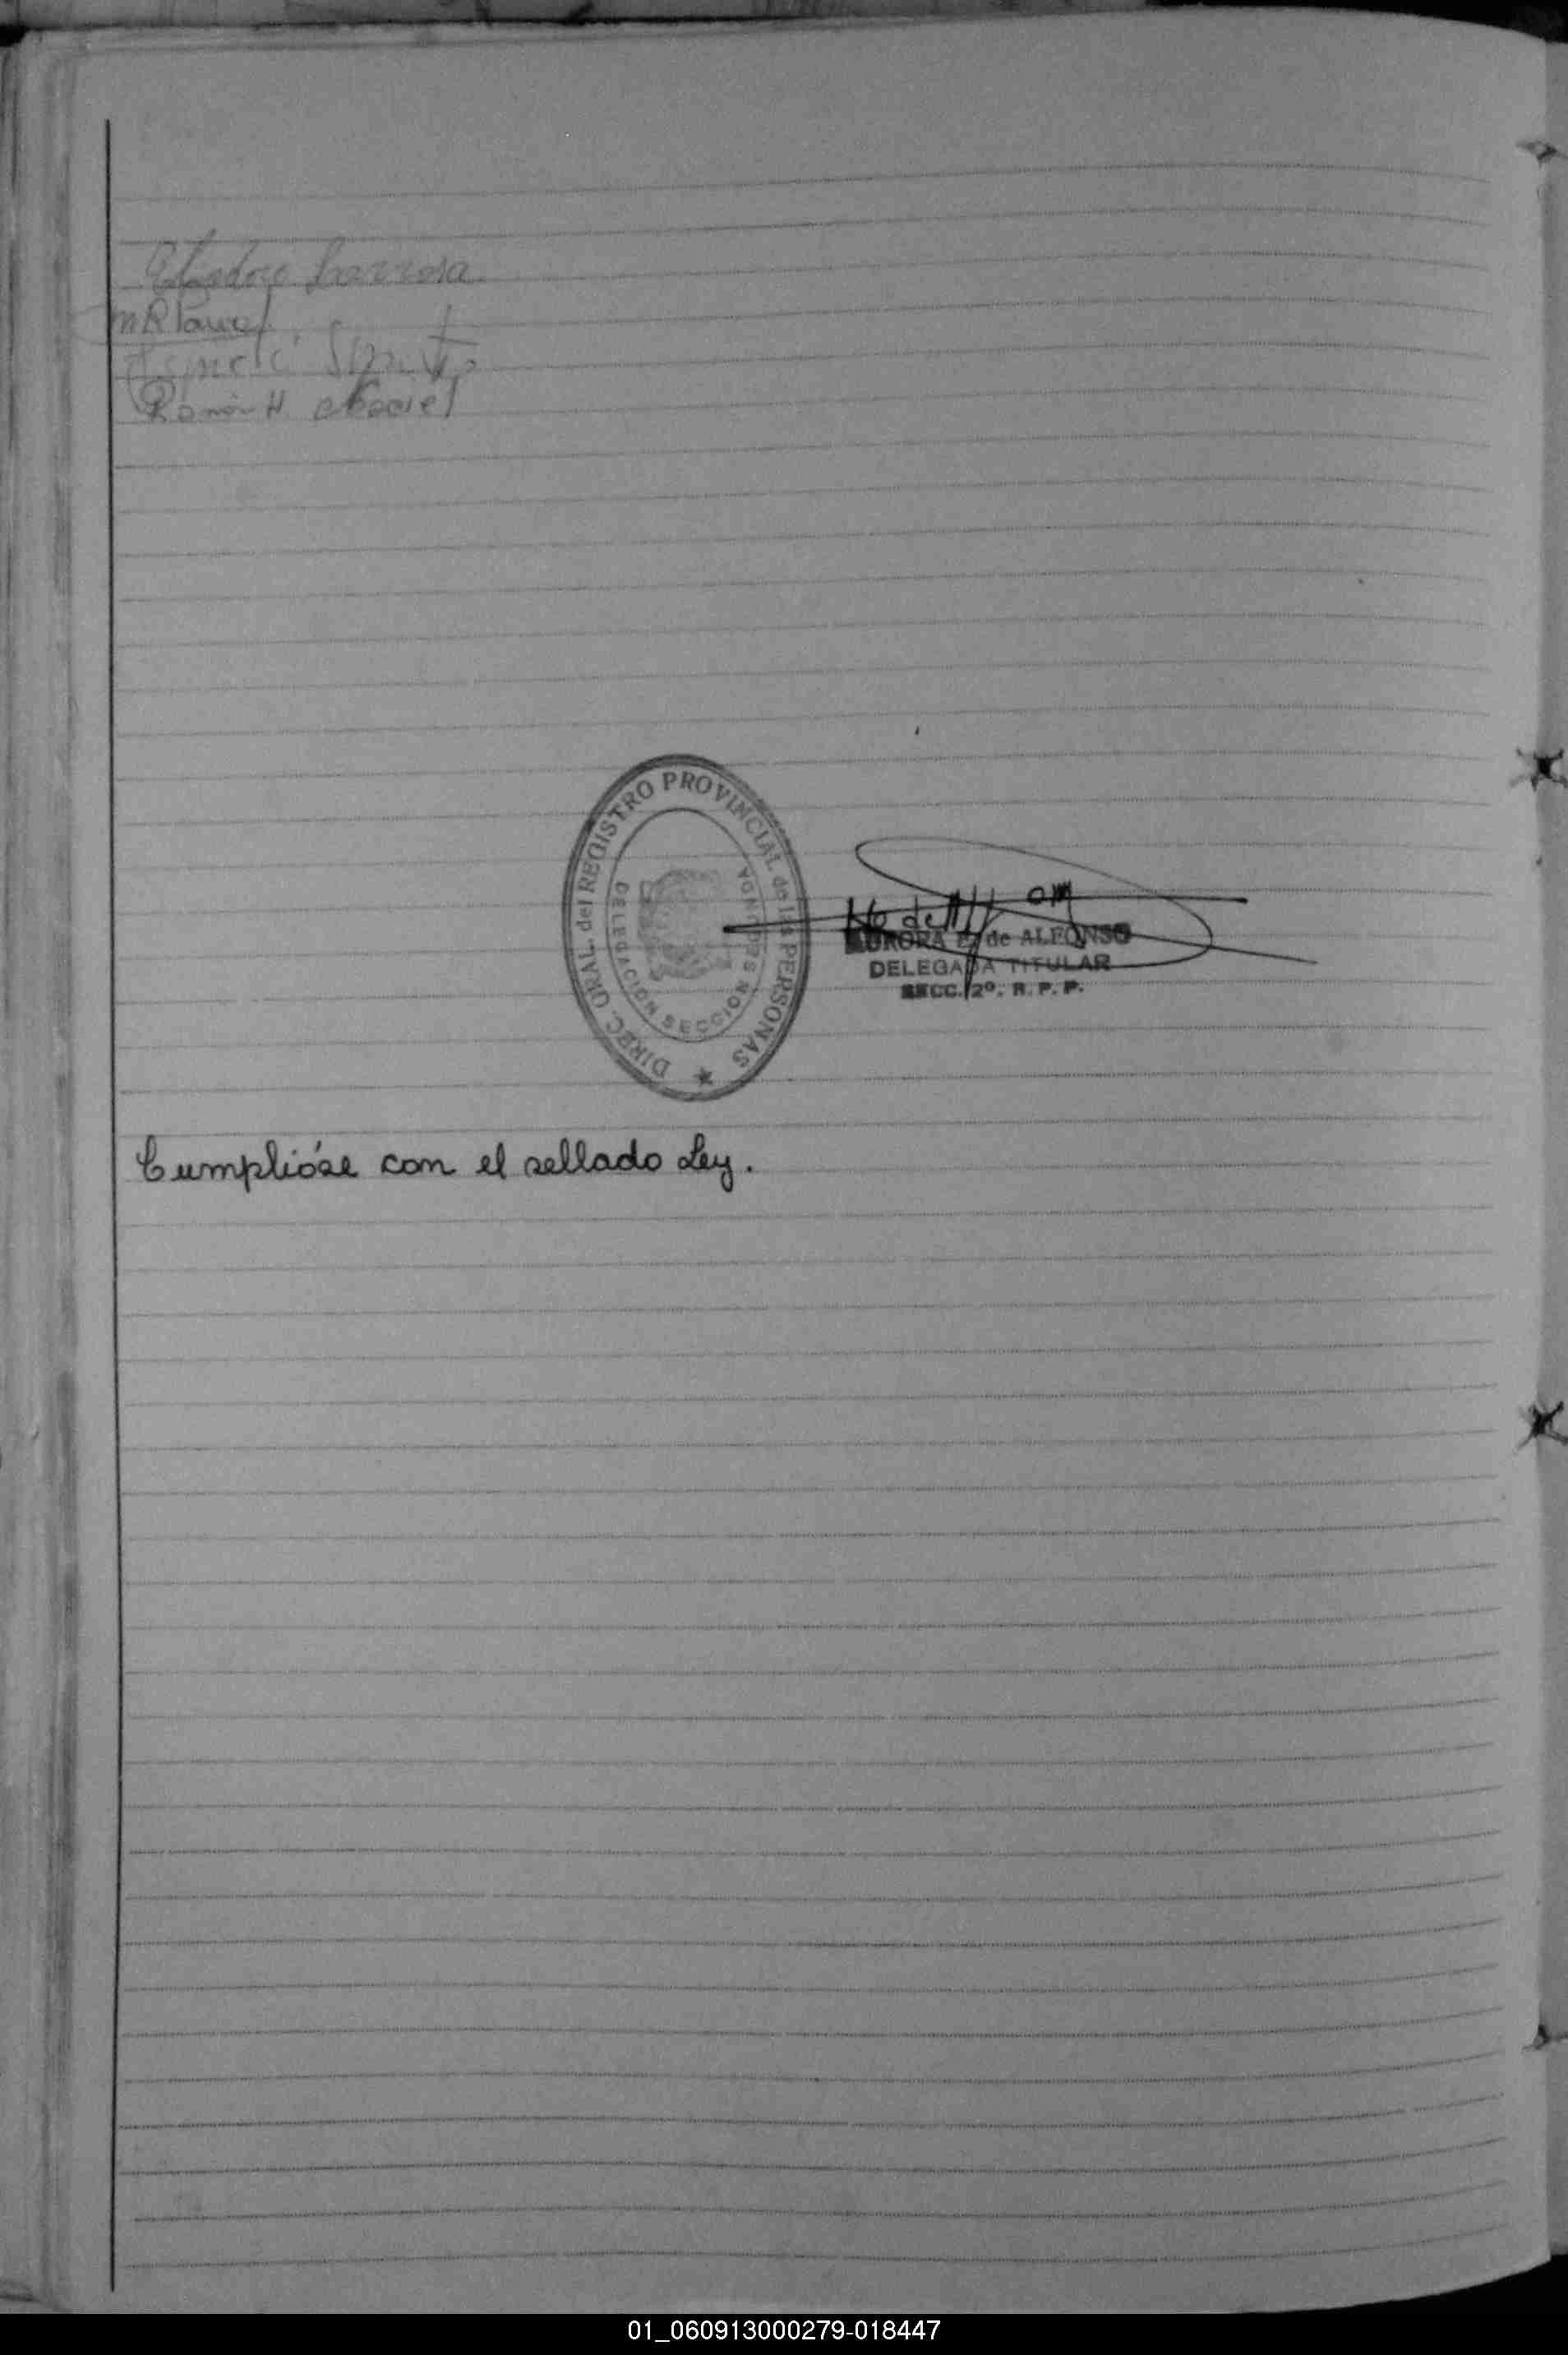 Eliodoro Barrosa
Ramón H. Maciel
DIREC. GRAL. del REGISTRO PROVINCIAL de las PERSONAS
DELEGACION SECCION SEGUNDA
AURORA E. de ALFONSO
DELEGADA TITULAR
SECC. 2º. R. P. P.
Cumplióse con el sellado Ley.
01_060913000279-018447